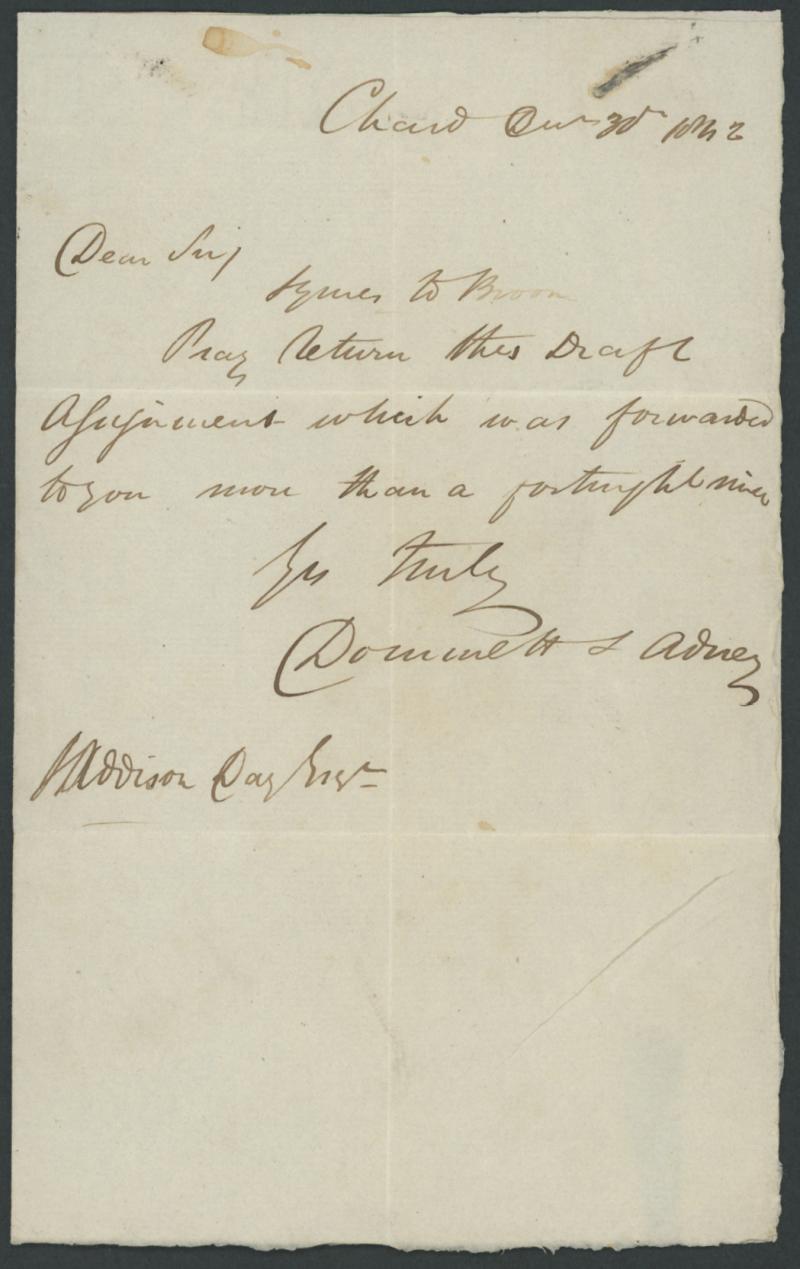 Chard Decr 30th 1842
Dear Sir,
Symes to Broom
Pray return this Draft
Assignment which was forwarded
to you more than a fortnight since
Yrs truly
Dommett & Adney
Addison Day Esqre